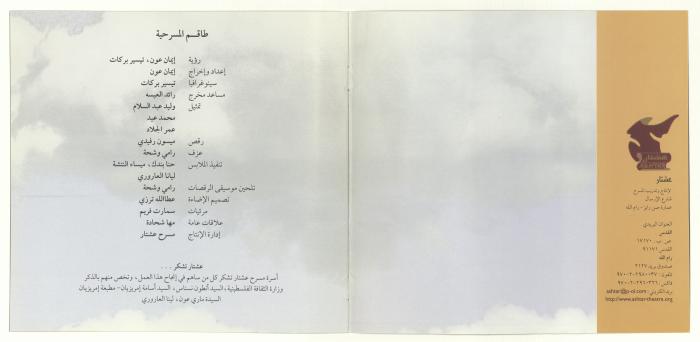 طاقم المسرحية
رؤية إيمان عون، تيسير بركات
إعداد وإخراج إيمان عون
سينوغرافيا تيسير بركات
مساعد مخرج رائد العيسه
تمثيل وليد عبد السلام
محمد عيد
عمر الجلاد
رقص ميسون رفيدي
عزف رامي وشحة
تنفيذ الملابس حنا بندك، ميساء النتشة
ليانا العاروري
تلحين موسيقى الرقصات رامي وشحة
تصميم الإضاءة عطاالله ترزي
مرئيات سمارت فريم
علاقات عامة مها شحادة
إدارة الإنتاج مسرح عشتار
عشتار تشكر ...
أسرة مسرح عشتار تشكر كل من ساهم في إنجاح هذا العمل، وتخص منهم بالذكر
وزارة الثقافة الفلسطينية، السيد أنطون نسناس، السيد أسامة إمريزيان - مطبعة إمريزيان
السيدة ماري عون، لينا العاروري
عشتار
لإنتاج وتدريب المسرح
شارع الإرسال
رام الله
العنوان البريدي
القدس
ص.ب. ١٧١٧٠
القدس ٩١١٧١
رام الله
صندوق بريد ٢١٢٧
تلفون:
فاكس:
بريد الكتروني: ashtar@p-ol.com
http://www.ashtar-theatre.org